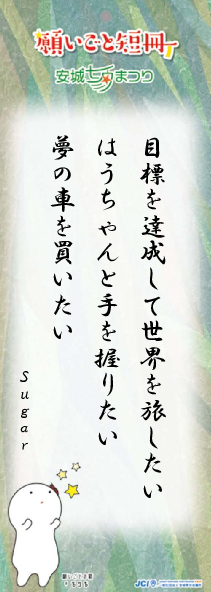 願いごと短冊
安城七夕まつり
目標を達成して世界を旅したい
はうちゃんと手を握りたい
夢の車を買いたい
Sugar
JCI